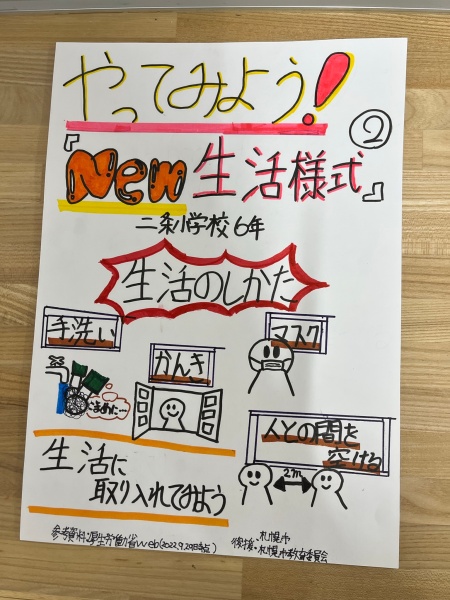 やってみよう!
②
『New生活様式』
二条小学校6年
生活のしかた
手洗い
かんき
マスク
こまめに…
人との間を
空ける
2m
生活に
取り入れてみよう
参考資料:厚生労働省web(2022.9.29時点)
後援・札幌市
・札幌市教育委員会